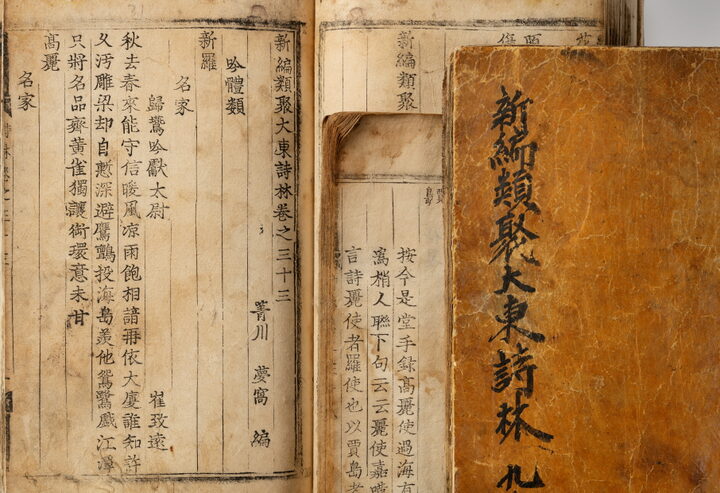 新編類聚大東詩林 九
新編類聚
賈島
按今是堂手録高麗使過海有
爲梢人聯下句云云麗使嘉
言詩麗使者羅使也以賈島者
新編類聚大東詩林卷之三十三
菁川 夢窩 編
吟體類
新羅
名家
歸鷰吟獻太尉 崔致遠
秋去春來能守信暖風凉雨飽相諳再依大廈誰知許
久汚雕梁却自慙深避鷹鸇投海島羨他鴛鷺戲江潭
只將名品齊黃雀獨讓銜環意未甘
高麗
名家